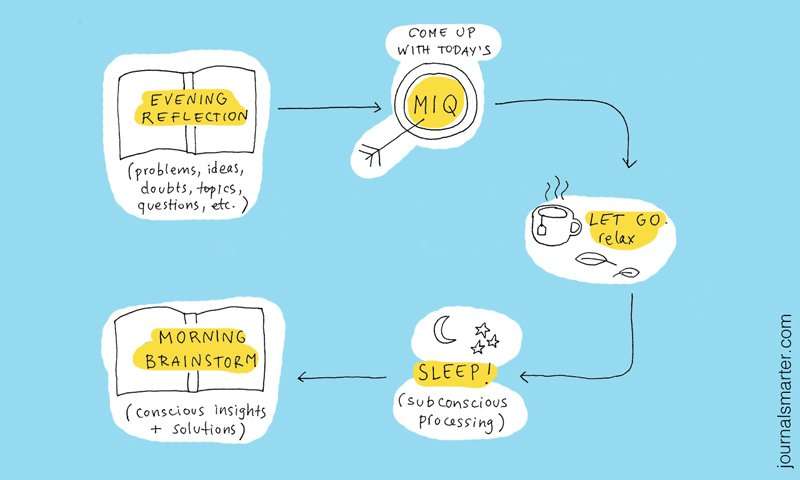 EVENING
REFLECTION
(problems, ideas,
doubts, topics,
questions, etc.)
COME UP
WITH TODAY'S
MIQ
LET GO.
relax
SLEEP!
(subconscious
processing)
MORNING
BRAINSTORM
(conscious insights
+ solutions)
journalsmarter.com